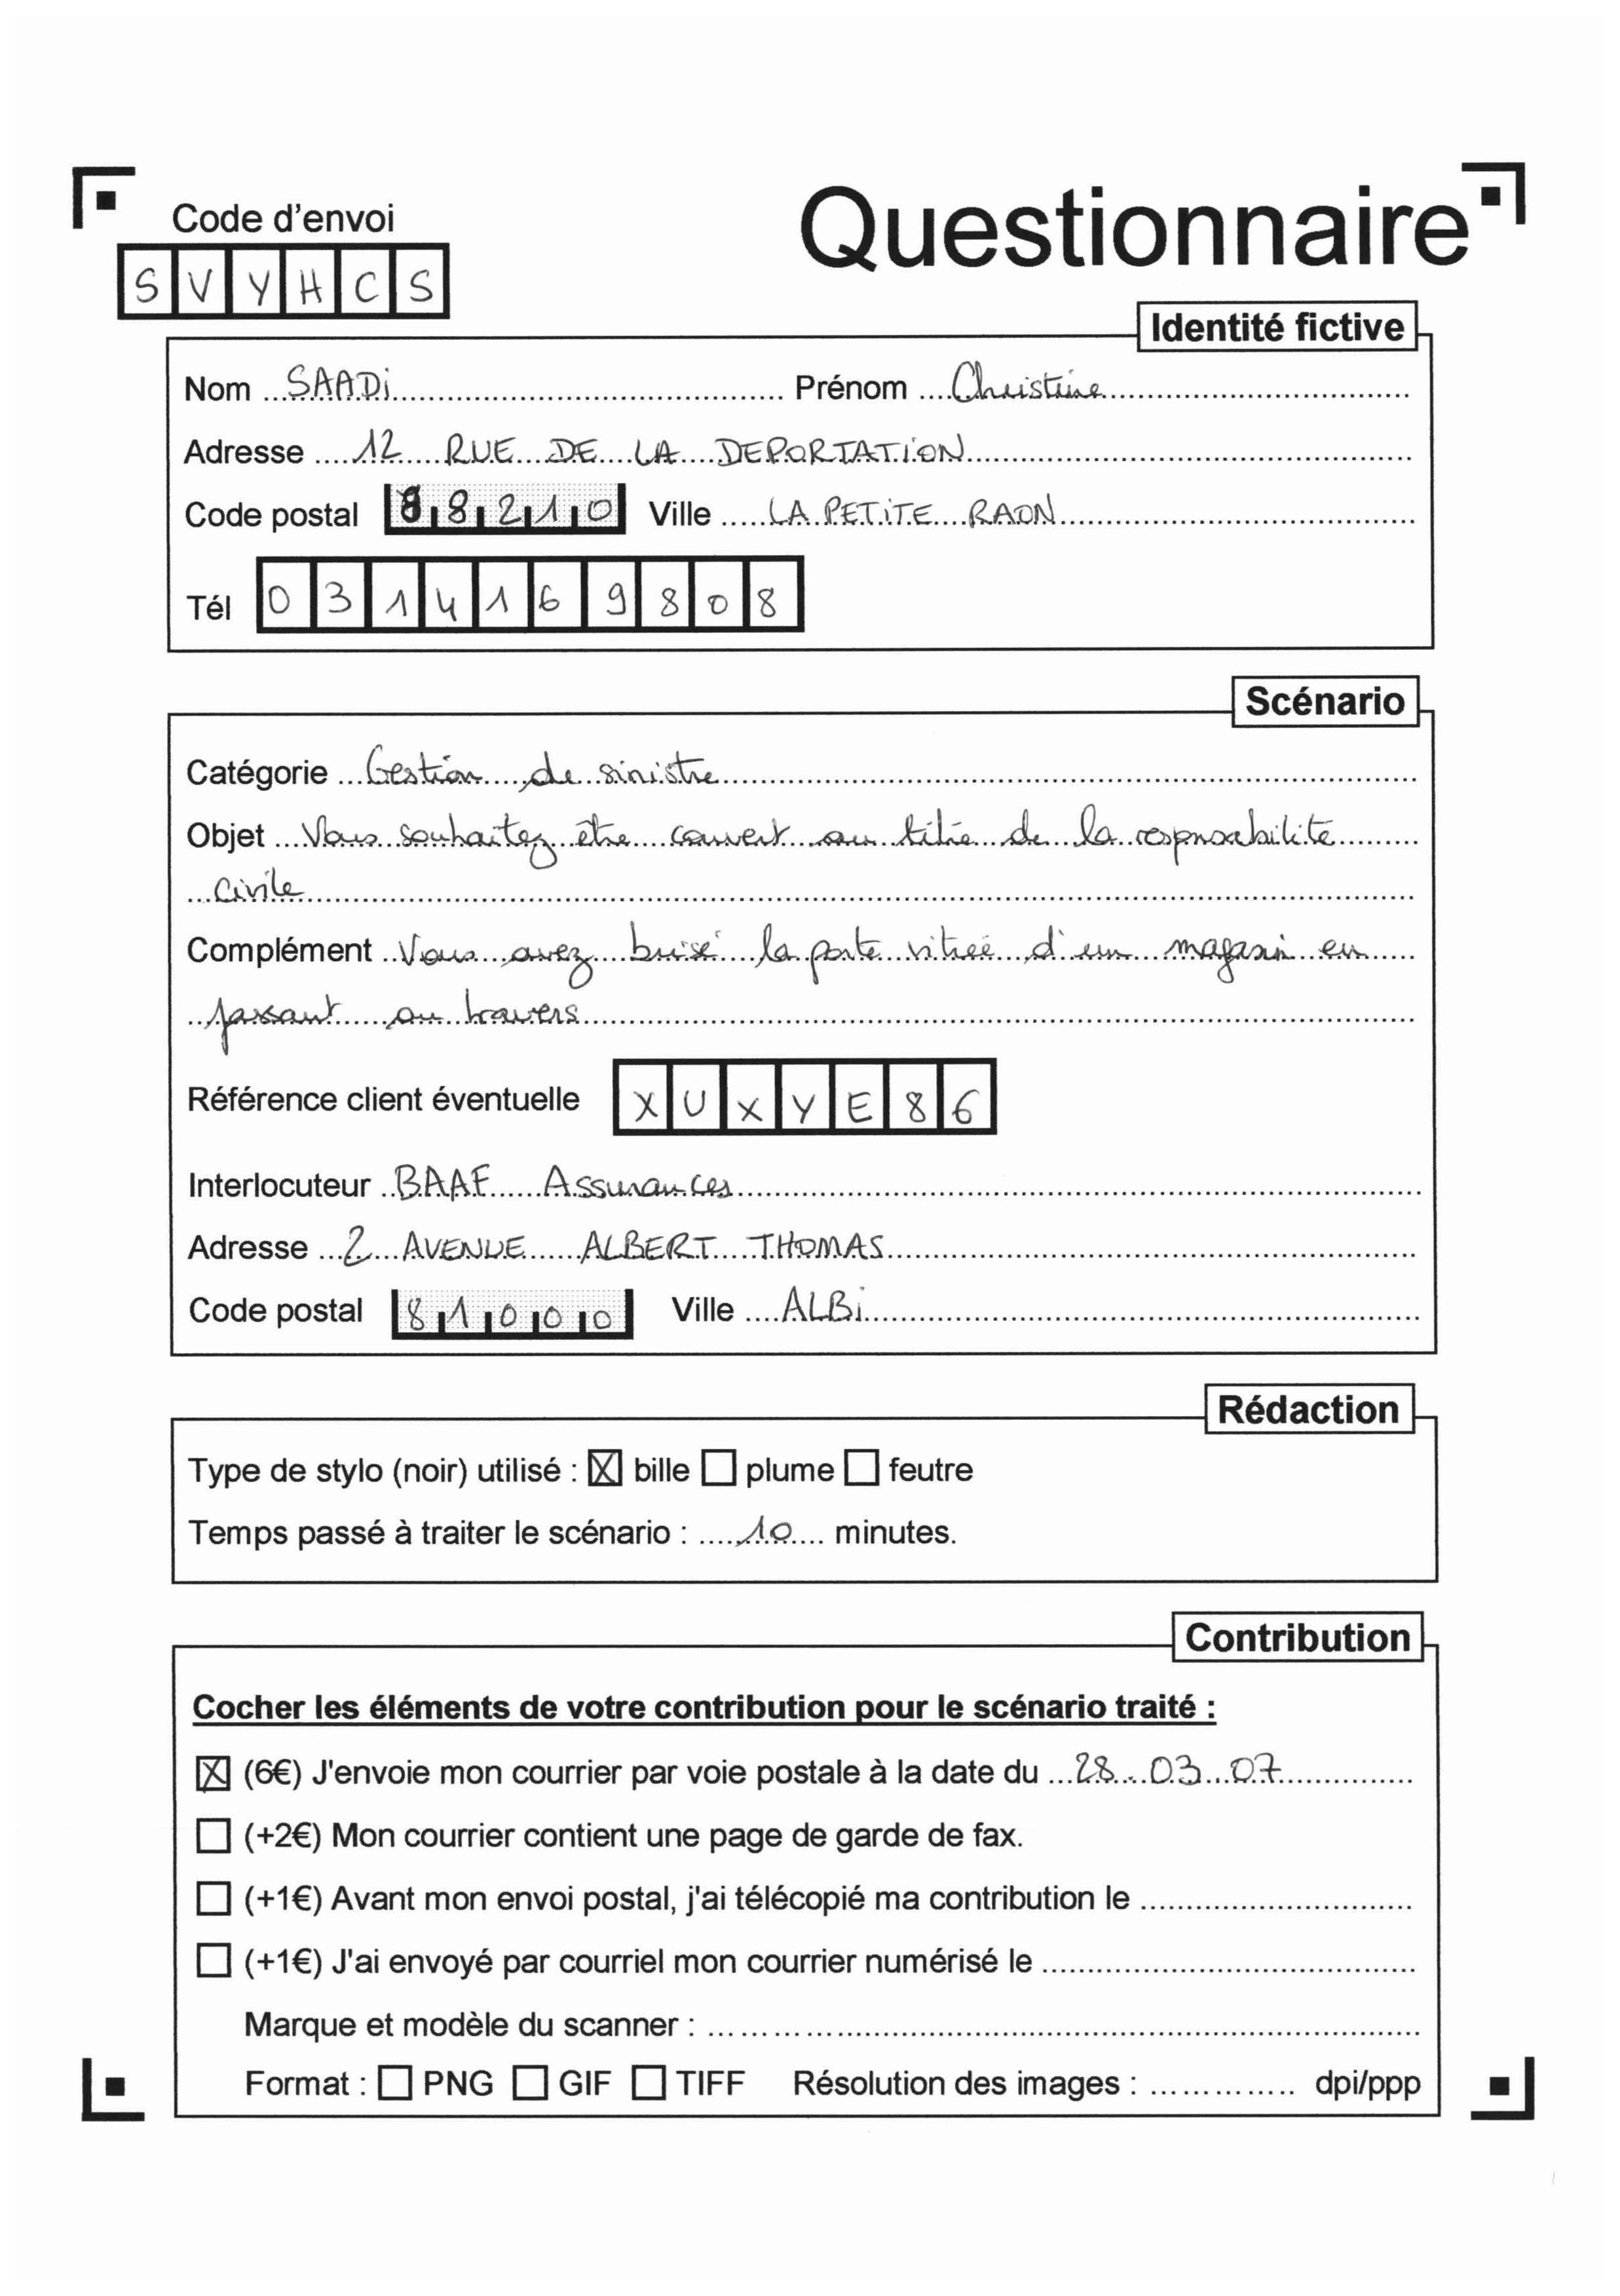 Code d'envoi
Questionnaire
S V Y H C S
Identité fictive
Nom SAADi Prénom Christine
Adresse 12 RUE DE LA DEPORTATiON
Code postal 88210 Ville LA PETiTE RAON
Tél 0314169808
Scénario
Catégorie Gestion de sinistre
Objet Vous souhaitez être couvert au titre de la responsabilité
civile
Complément Vous avez brisé la porte vitrée d'un magasin en
passant au travers
Référence client éventuelle XUXYE86
Interlocuteur BAAF Assurances
Adresse 2 AVENUE ALBERT THOMAS
Code postal 81000 Ville ALBi
Rédaction
Type de stylo (noir) utilisé : ☒ bille ☐ plume ☐ feutre
Temps passé à traiter le scénario : 10 minutes.
Contribution
Cocher les éléments de votre contribution pour le scénario traité :
☒ (6€) J'envoie mon courrier par voie postale à la date du 28.03.07
☐ (+2€) Mon courrier contient une page de garde de fax.
☐ (+1€) Avant mon envoi postal, j'ai télécopié ma contribution le
☐ (+1€) J'ai envoyé par courriel mon courrier numérisé le
Marque et modèle du scanner :
Format : ☐ PNG ☐ GIF ☐ TIFF Résolution des images : dpi/ppp